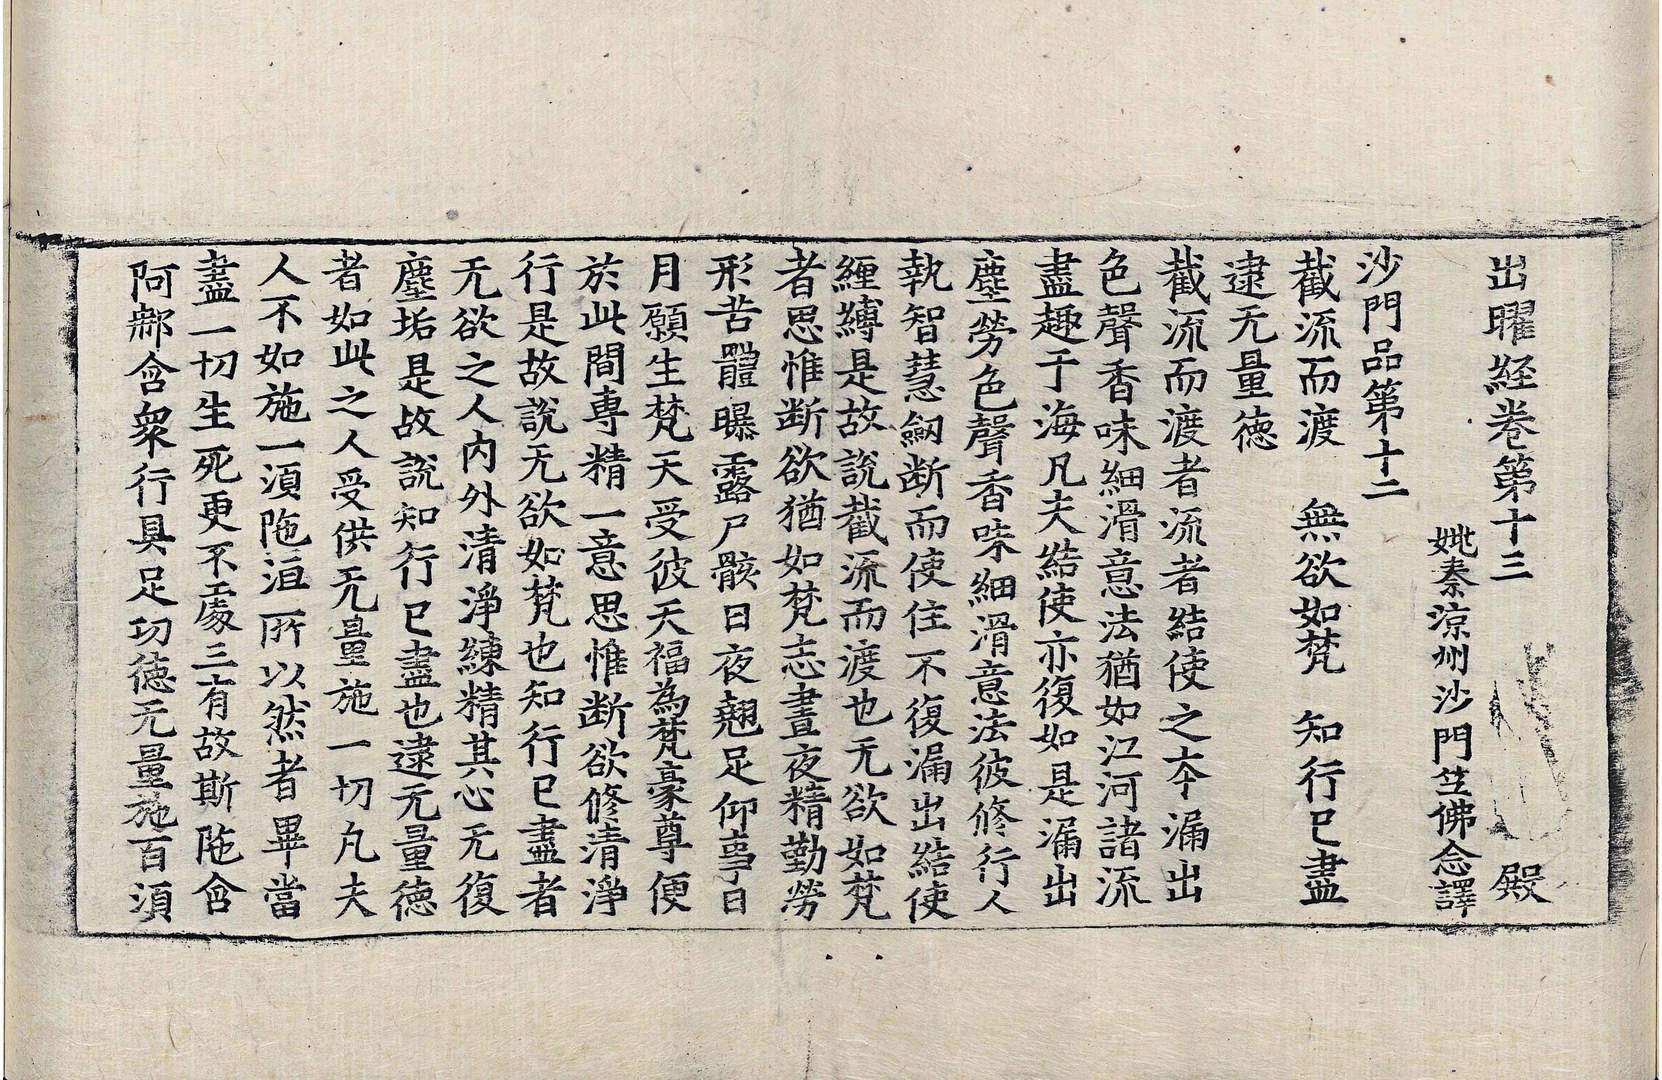 出曜経卷第十三 殿
姚秦涼州沙門竺佛念譯
沙門品第十二
截流而渡 無欲如梵 知行已盡
逮无量德
截流而渡者流者結使之本漏出
色聲香味細滑意法猶如江河諸流
盡趣于海凡夫結使亦復如是漏出
塵勞色聲香味細滑意法彼修行人
執智慧劒断而使住不復漏出結使
縺縛是故說截流而渡也无欲如梵
者思惟断欲猶如梵志晝夜精勤勞
形苦體曝露尸骸日夜翹足仰事日
月願生梵天受彼天福為梵豪尊便
於此間專精一意思惟断欲修清淨
行是故說无欲如梵也知行已盡者
无欲之人內外清淨練精其心无復
塵垢是故說知行已盡也逮无量德
者如此之人受供无量施一切凡夫
人不如施一湏陁洹所以然者畢當
盡一切生死更不處三有故斯陁含
阿那含衆行具足功德无量施百湏